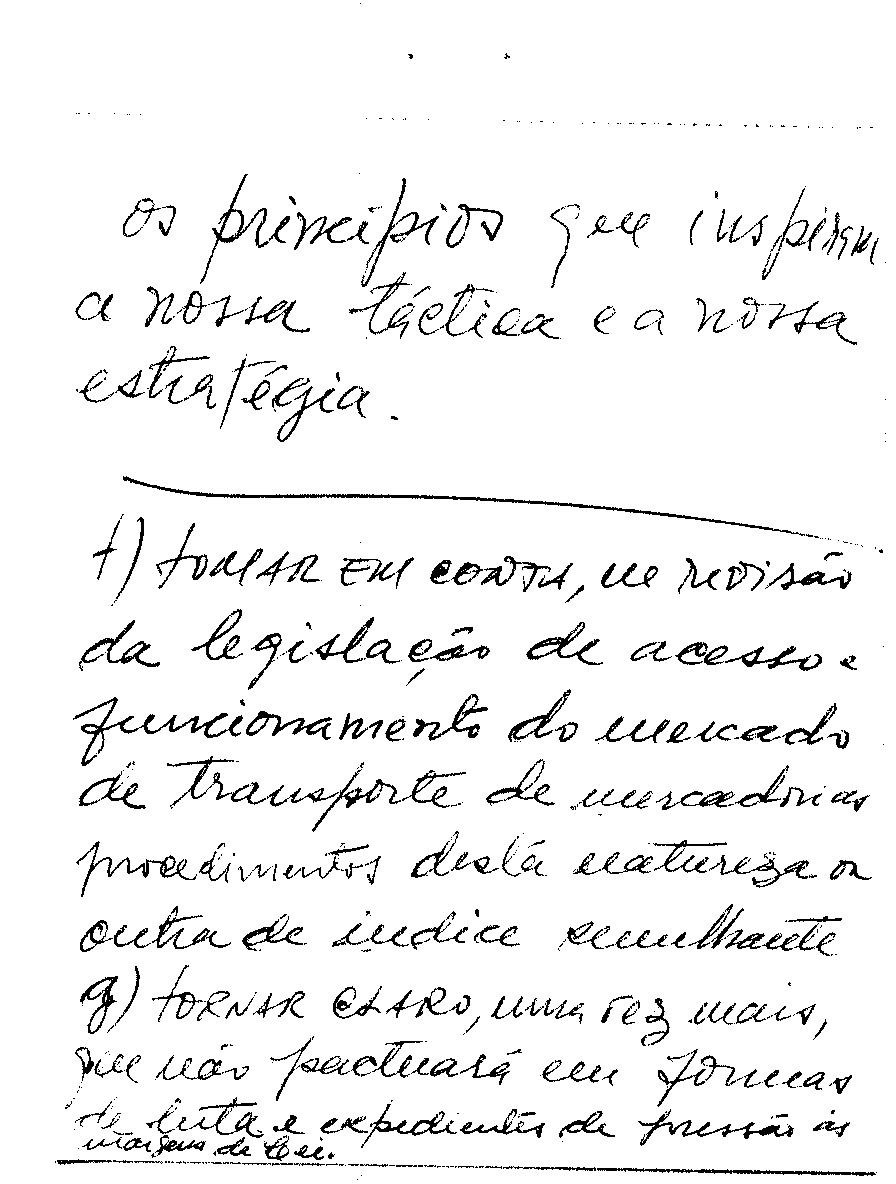 os princípios que inspiram
a nossa táctica e a nossa
estratégia.
f) TOMAR EM CONTA, na revisão
da legislação de acesso e
funcionamento do mercado
de transporte de mercadorias
procedimentos desta natureza ou
outra de índice semelhante
g) TORNAR CLARO, uma vez mais,
que não pactuará em formas
de luta e expedientes de pressão às
margens da Lei.